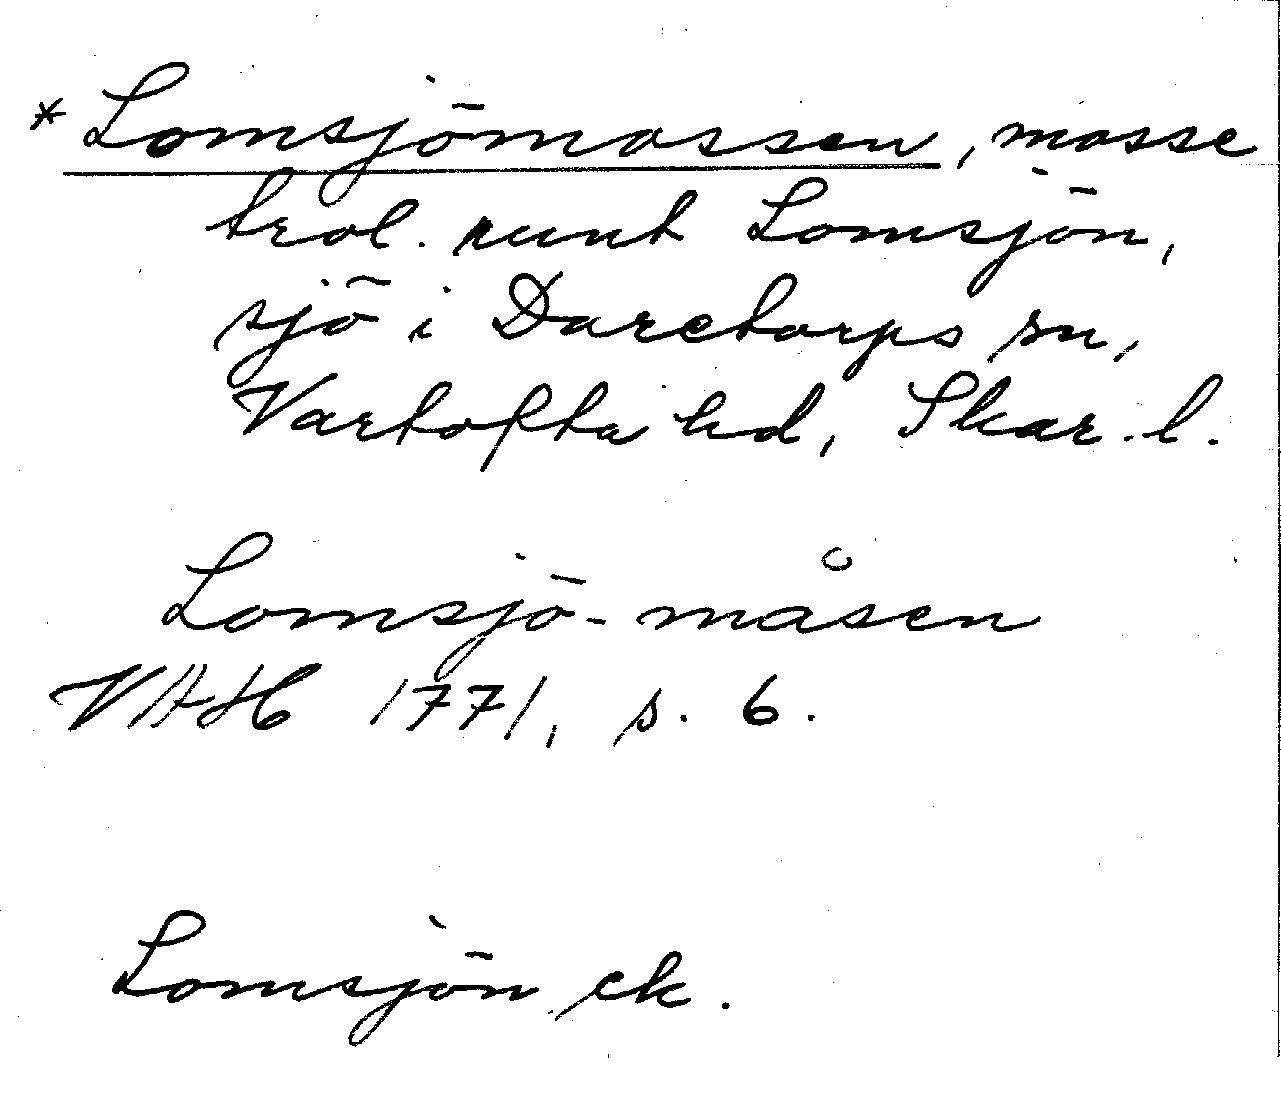 * Lomsjömossen, mosse
trol. runt Lomsjön,
sjö i Daretorps sn,
Vartofta hd, Skar. l.
Lomsjö-måsen
VAH 1771, s. 6.
Lomsjön, ek.